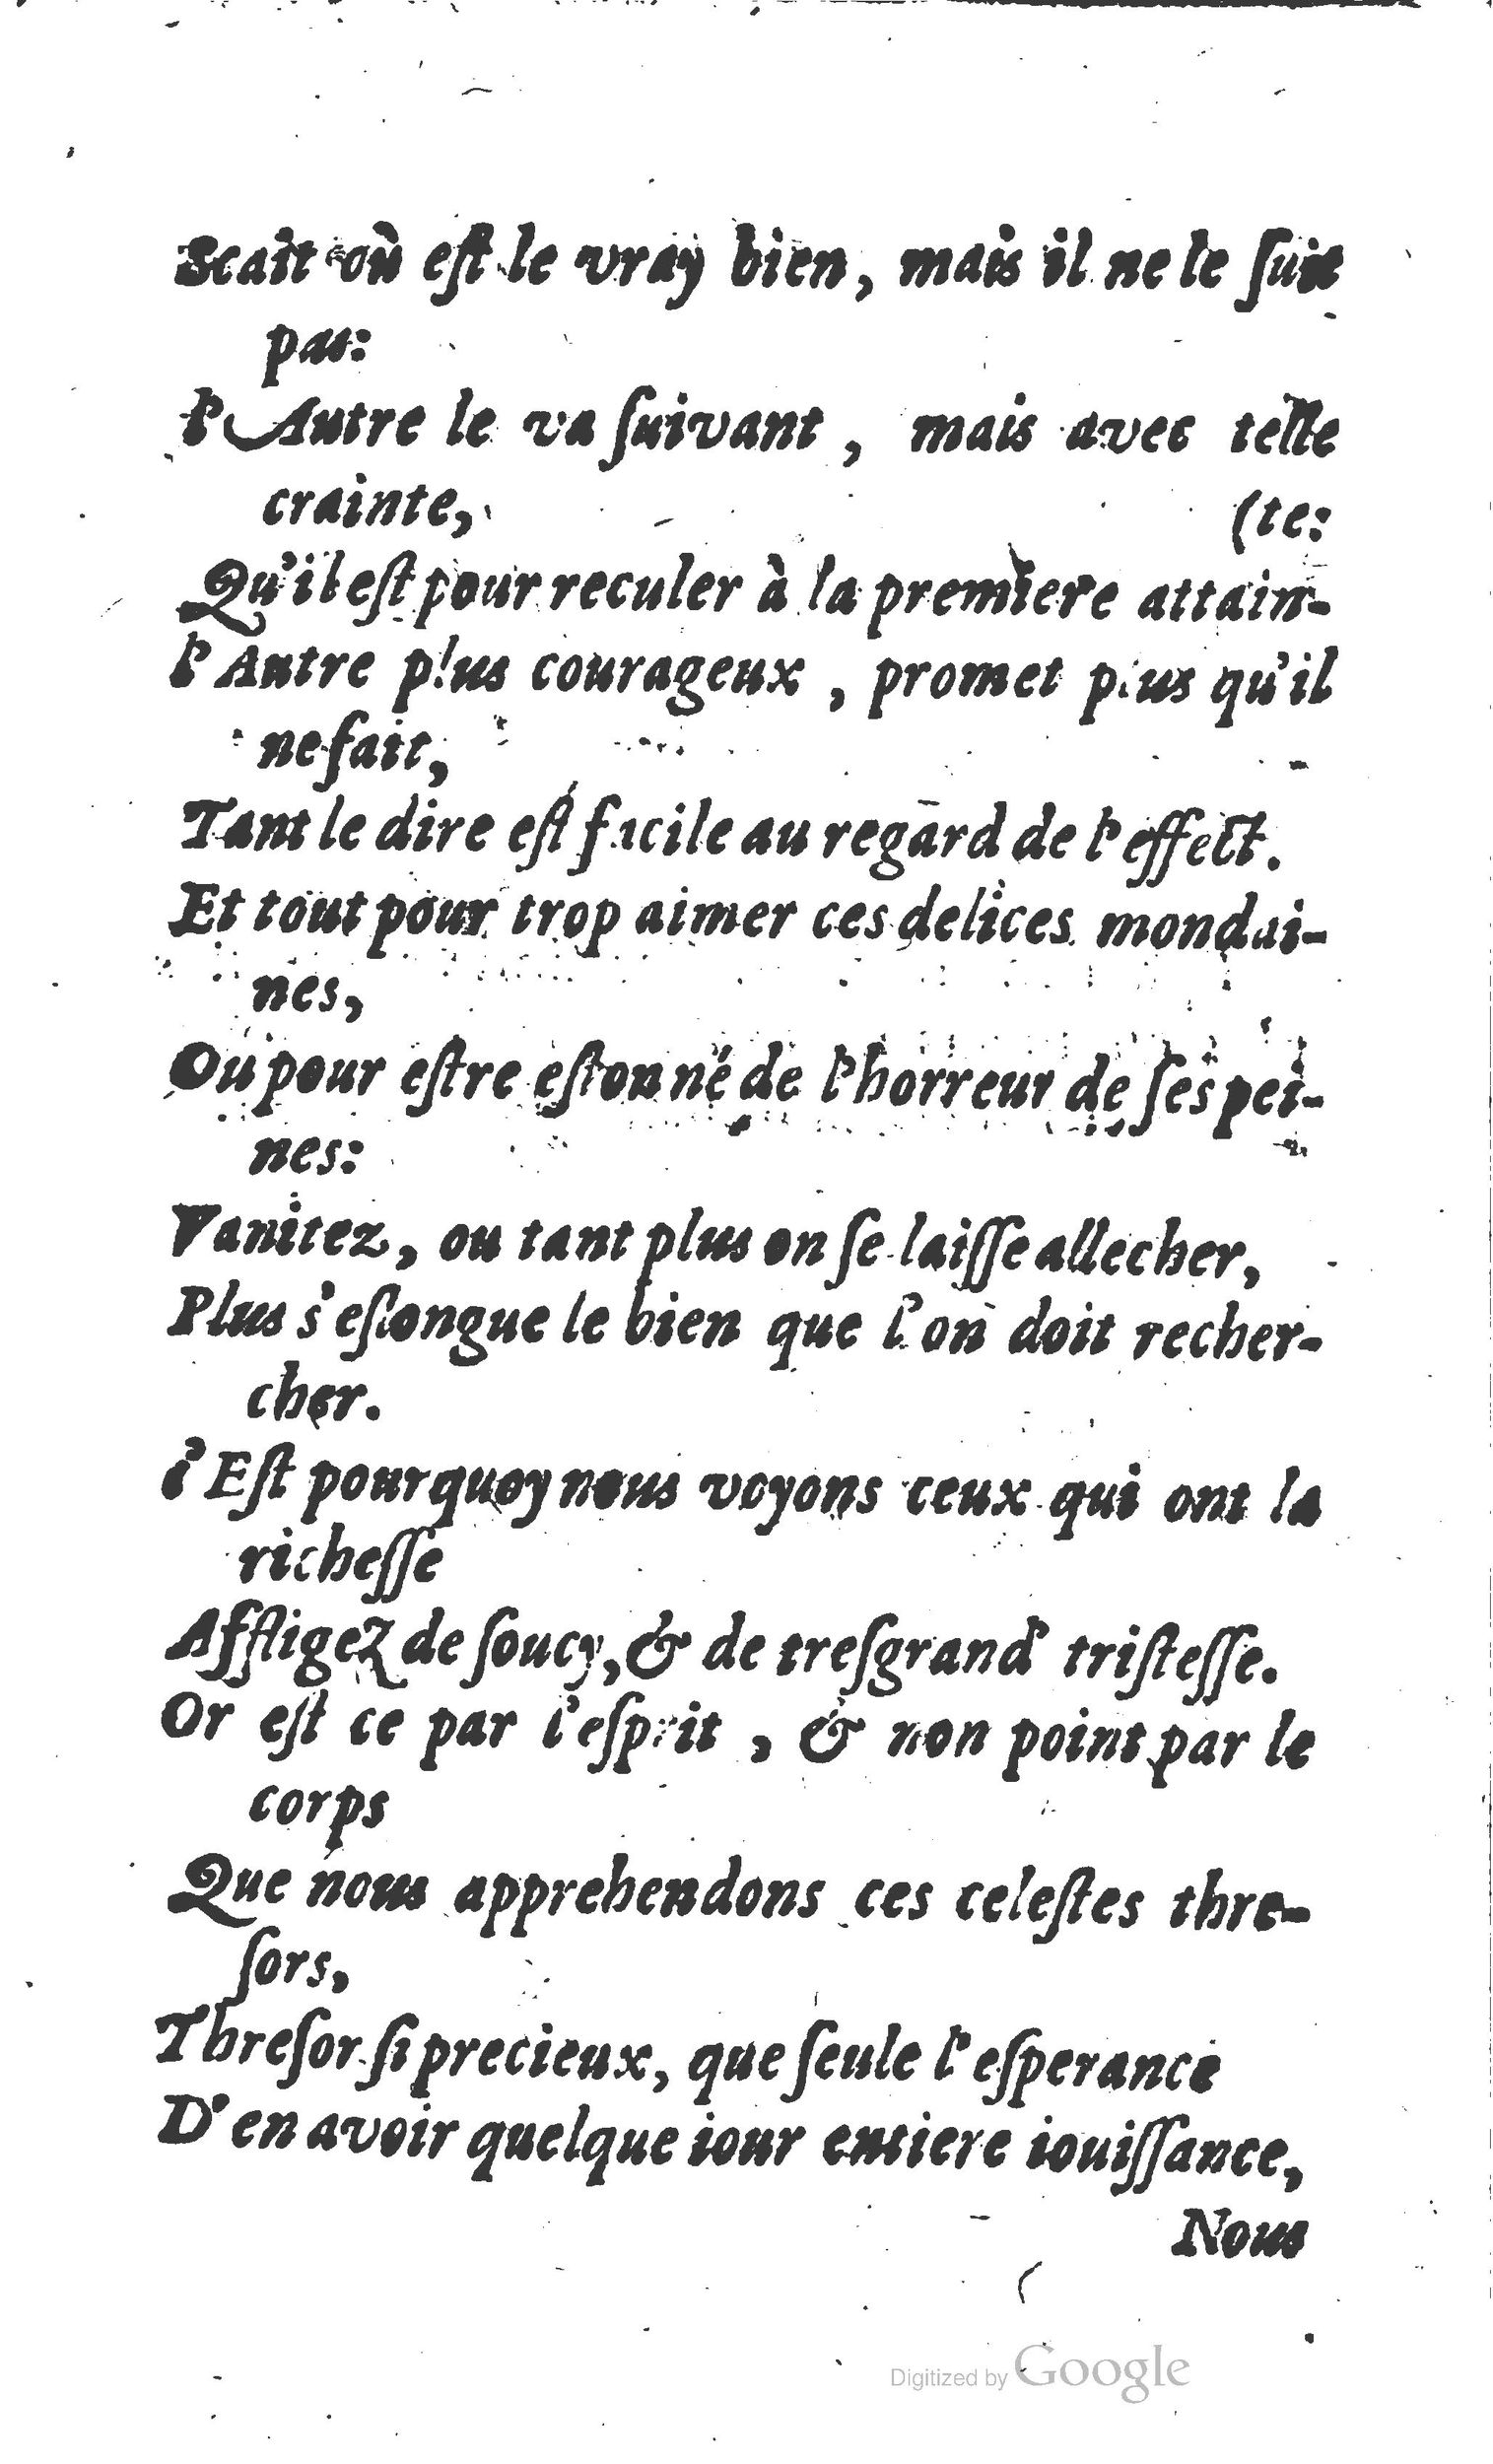 Scait où eſt le vray bien, mais il ne le ſuit
pas:
l'Autre le va ſuivant, mais avec telle
crainte, (te:
Qu'il eſt pour reculer à la premiere attain-
l'Autre plus courageux, promet plus qu'il
ne fait,
Tant le dire eſt facile au regard de l'effect.
Et tout pour trop aimer ces delices mondai-
nes,
Ou pour eſtre eſtonné de l'horreur de ſes pei-
nes:
Vanitez, ou tant plus on ſe laiſſe allecher,
Plus s'eſlongue le bien que l'on doit recher-
cher.
c'Eſt pourquoy nous voyons ceux qui ont la
richeſſe
Affligez de ſoucy, & de treſgrand' triſteſſe.
Or eſt ce par l'eſprit, & non point par le
corps
Que nous apprehendons ces celeſtes thre-
ſors,
Threſor ſi precieux, que ſeule l'eſperance
D'en avoir quelque iour entiere iouiſſance,
Nous
Digitized by Google